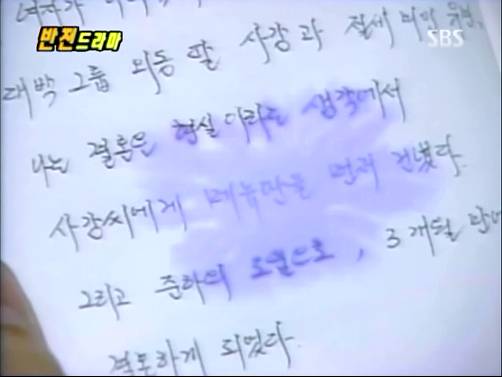 반전드라마
SBS
여자가
대박그룹 외동딸 사강과 절세미인 유민.
나는 결혼은 현실이라는 생각에서
사강씨에게 메뉴판을 먼저 건넸다.
그리고 준하의 도움으로, 3개월 만에
결혼하게 되었다.